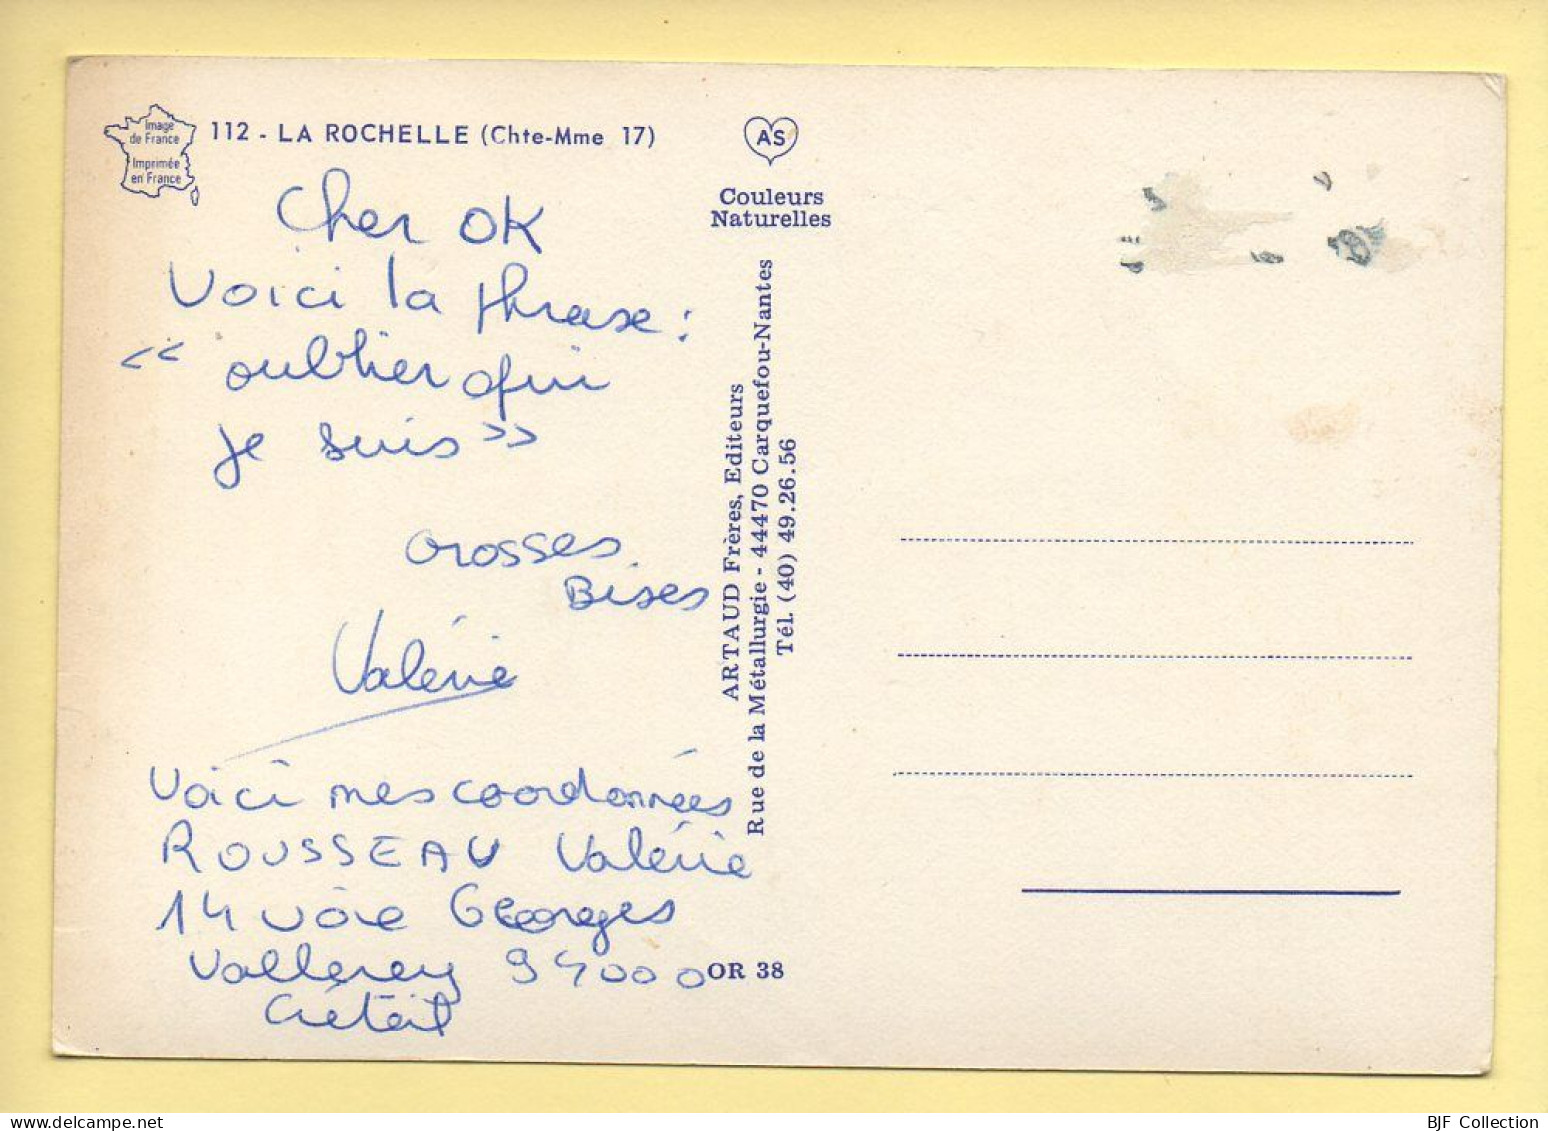 Image
de France
Imprimée
en France
112 - LA ROCHELLE (Chte-Mme 17)
Cher OK
Voici la phrase :
<< oublier qui
je suis >>
Grosses
Bises
Valérie
Voici mes coordonnées
ROUSSEAU Valérie
14 voie Georges
Vallerey 94000
Créteil
AS
Couleurs
Naturelles
ARTAUD Frères, Editeurs
Rue de la Métallurgie - 44470 Carquefou-Nantes
Tél. (40) 49.26.56
OR 38
BJF Collection